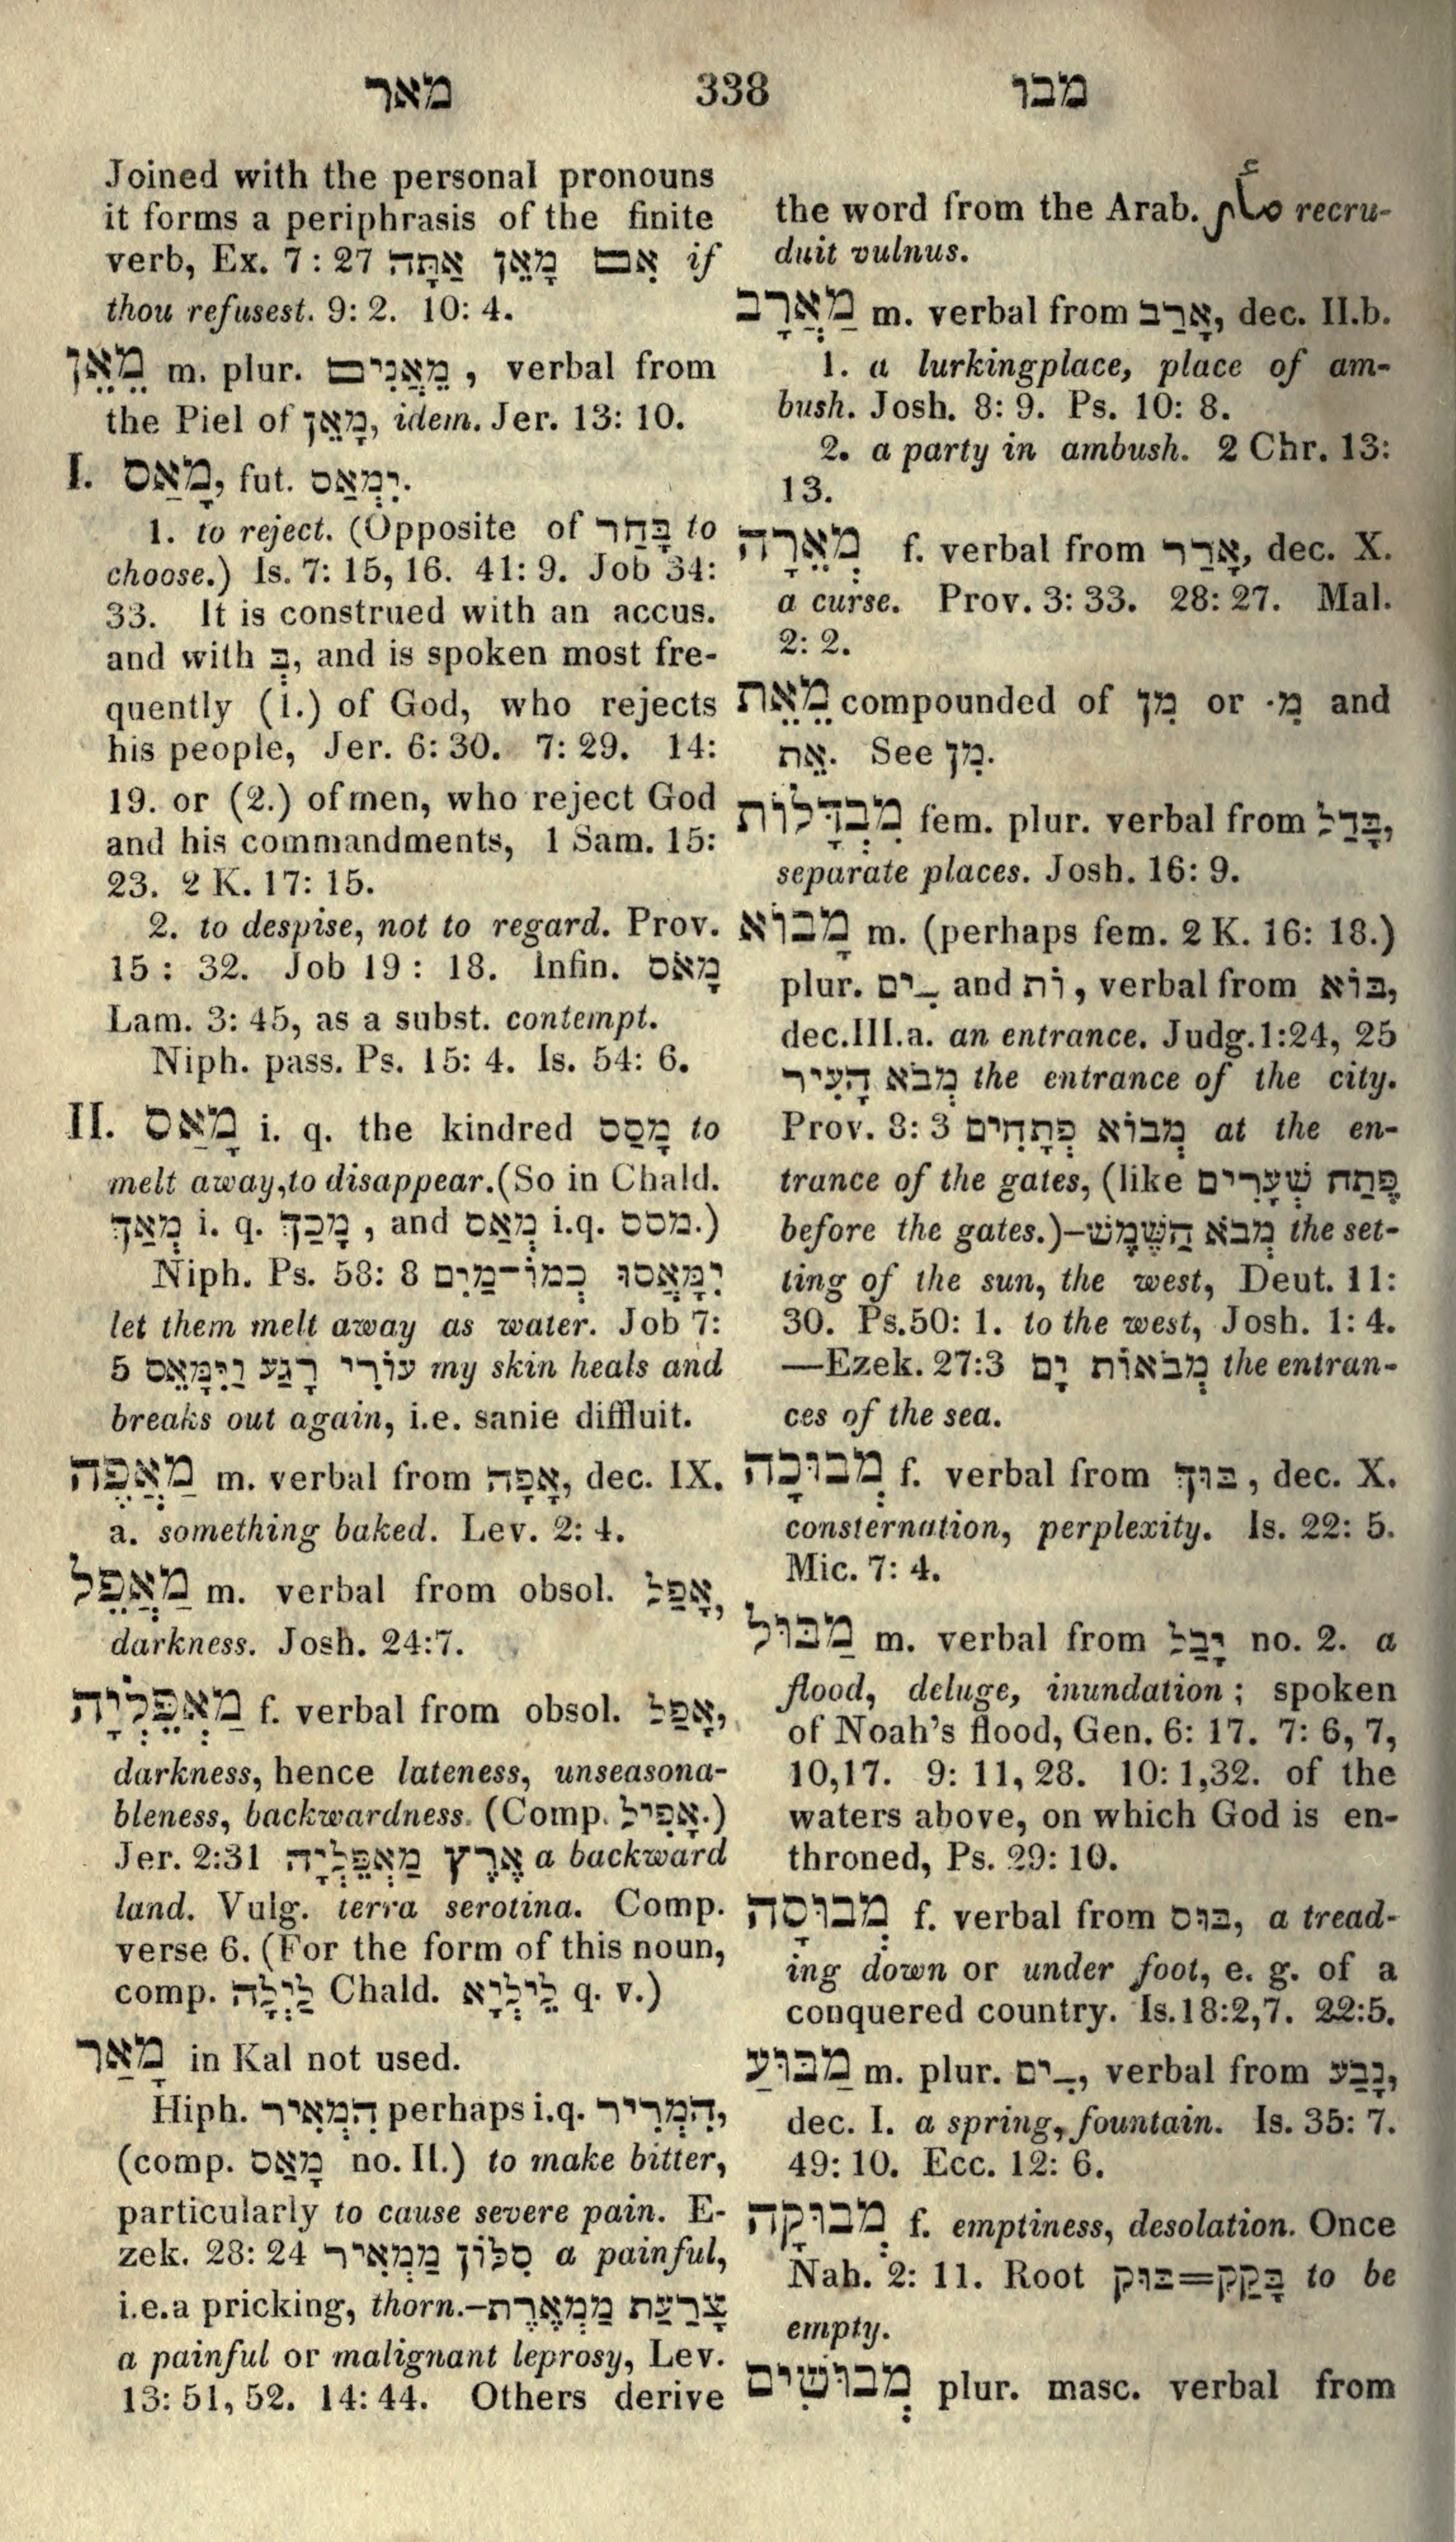 מאר 338 מבו
Joined with the personal pronouns
it forms a periphrasis of the finite
verb, Ex. 7: 27 אִם מָאֵן אַתָּה if
thou refusest. 9: 2. 10: 4.
מֵאֵן m. plur. מֵאֲנִים, verbal from
the Piel of מָאֵן, idem. Jer. 13: 10.
I. מָאַס, fut. יִמְאַס.
1. to reject. (Opposite of בָּחַר to
choose.) Is. 7: 15, 16. 41: 9. Job 34:
33. It is construed with an accus.
and with בְּ, and is spoken most fre-
quently (1.) of God, who rejects
his people, Jer. 6: 30. 7: 29. 14:
19. or (2.) of men, who reject God
and his commandments, 1 Sam. 15:
23. 2 K. 17: 15.
2. to despise, not to regard. Prov.
15: 32. Job 19: 18. Infin. מָאֹס
Lam. 3: 45, as a subst. contempt.
Niph. pass. Ps. 15: 4. Is. 54: 6.
II. מָאַס i. q. the kindred מָסַס to
melt away, to disappear. (So in Chald.
מְאַךְ i. q. מָכַךְ, and מְאַס i.q. מסס.)
Niph. Ps. 58: 8 יִמָּאֲסוּ כְמוֹ־מַיִם
let them melt away as water. Job 7:
5 עוֹרִי רָגַע וַיִּמָּאֵס my skin heals and
breaks out again, i.e. sanie diffluit.
מַאֲפֶה m. verbal from אָפָה, dec. IX.
a. something baked. Lev. 2: 4.
מַאֲפֵל m. verbal from obsol. אָפַל,
darkness. Josh. 24:7.
מַאְפֵּלְיָה f. verbal from obsol. אָפַל,
darkness, hence lateness, unseasona-
bleness, backwardness. (Comp. אָפִיל.)
Jer. 2:31 אֶרֶץ מַאְפֵּלְיָה a backward
land. Vulg. terra serotina. Comp.
verse 6. (For the form of this noun,
comp. לַיְלָה Chald. לֵילְיָא q. v.)
מָאַר in Kal not used.
Hiph. הִמְאִיר perhaps i.q. הִמְרִיר,
(comp. מָאַס no. II.) to make bitter,
particularly to cause severe pain. E-
zek. 28: 24 סִלּוֹן מַמְאִיר a painful,
i.e. a pricking, thorn.—צָרַעַת מַמְאֶרֶת
a painful or malignant leprosy, Lev.
13: 51, 52. 14: 44. Others derive
the word from the Arab. مأر recru-
duit vulnus.
מַאֲרָב m. verbal from אָרַב, dec. II.b.
1. a lurkingplace, place of am-
bush. Josh. 8: 9. Ps. 10: 8.
2. a party in ambush. 2 Chr. 13:
13.
מְאֵרָה f. verbal from אָרַר, dec. X.
a curse. Prov. 3: 33. 28: 27. Mal.
2: 2.
מֵאֵת compounded of מִן or מִ· and
אֵת. See מִן.
מִבְדָּלוֹת fem. plur. verbal from בָּדַל,
separate places. Josh. 16: 9.
מָבוֹא m. (perhaps fem. 2 K. 16: 18.)
plur. ־ִים and וֹת, verbal from בּוֹא,
dec.III.a. an entrance. Judg.1:24, 25
מְבֹא הָעִיר the entrance of the city.
Prov. 8: 3 מְבוֹא פְתָחִים at the en-
trance of the gates, (like פֶּתַח שְׁעָרִים
before the gates.)—מְבֹא הַשֶּׁמֶשׁ the set-
ting of the sun, the west, Deut. 11:
30. Ps.50: 1. to the west, Josh. 1: 4.
—Ezek. 27:3 מְבֹאוֹת יָם the entran-
ces of the sea.
מְבוּכָה f. verbal from בּוּךְ, dec. X.
consternation, perplexity. Is. 22: 5.
Mic. 7: 4.
מַבּוּל m. verbal from יָבַל no. 2. a
flood, deluge, inundation; spoken
of Noah's flood, Gen. 6: 17. 7: 6, 7,
10,17. 9: 11, 28. 10: 1,32. of the
waters above, on which God is en-
throned, Ps. 29: 10.
מְבוּסָה f. verbal from בּוּס, a tread-
ing down or under foot, e. g. of a
conquered country. Is.18:2,7. 22:5.
מַבּוּעַ m. plur. ־ִים, verbal from נָבַע,
dec. I. a spring, fountain. Is. 35: 7.
49: 10. Ecc. 12: 6.
מְבוּקָה f. emptiness, desolation. Once
Nah. 2: 11. Root בּוּק=בָּקַק to be
empty.
מְבוּשִׁים plur. masc. verbal from